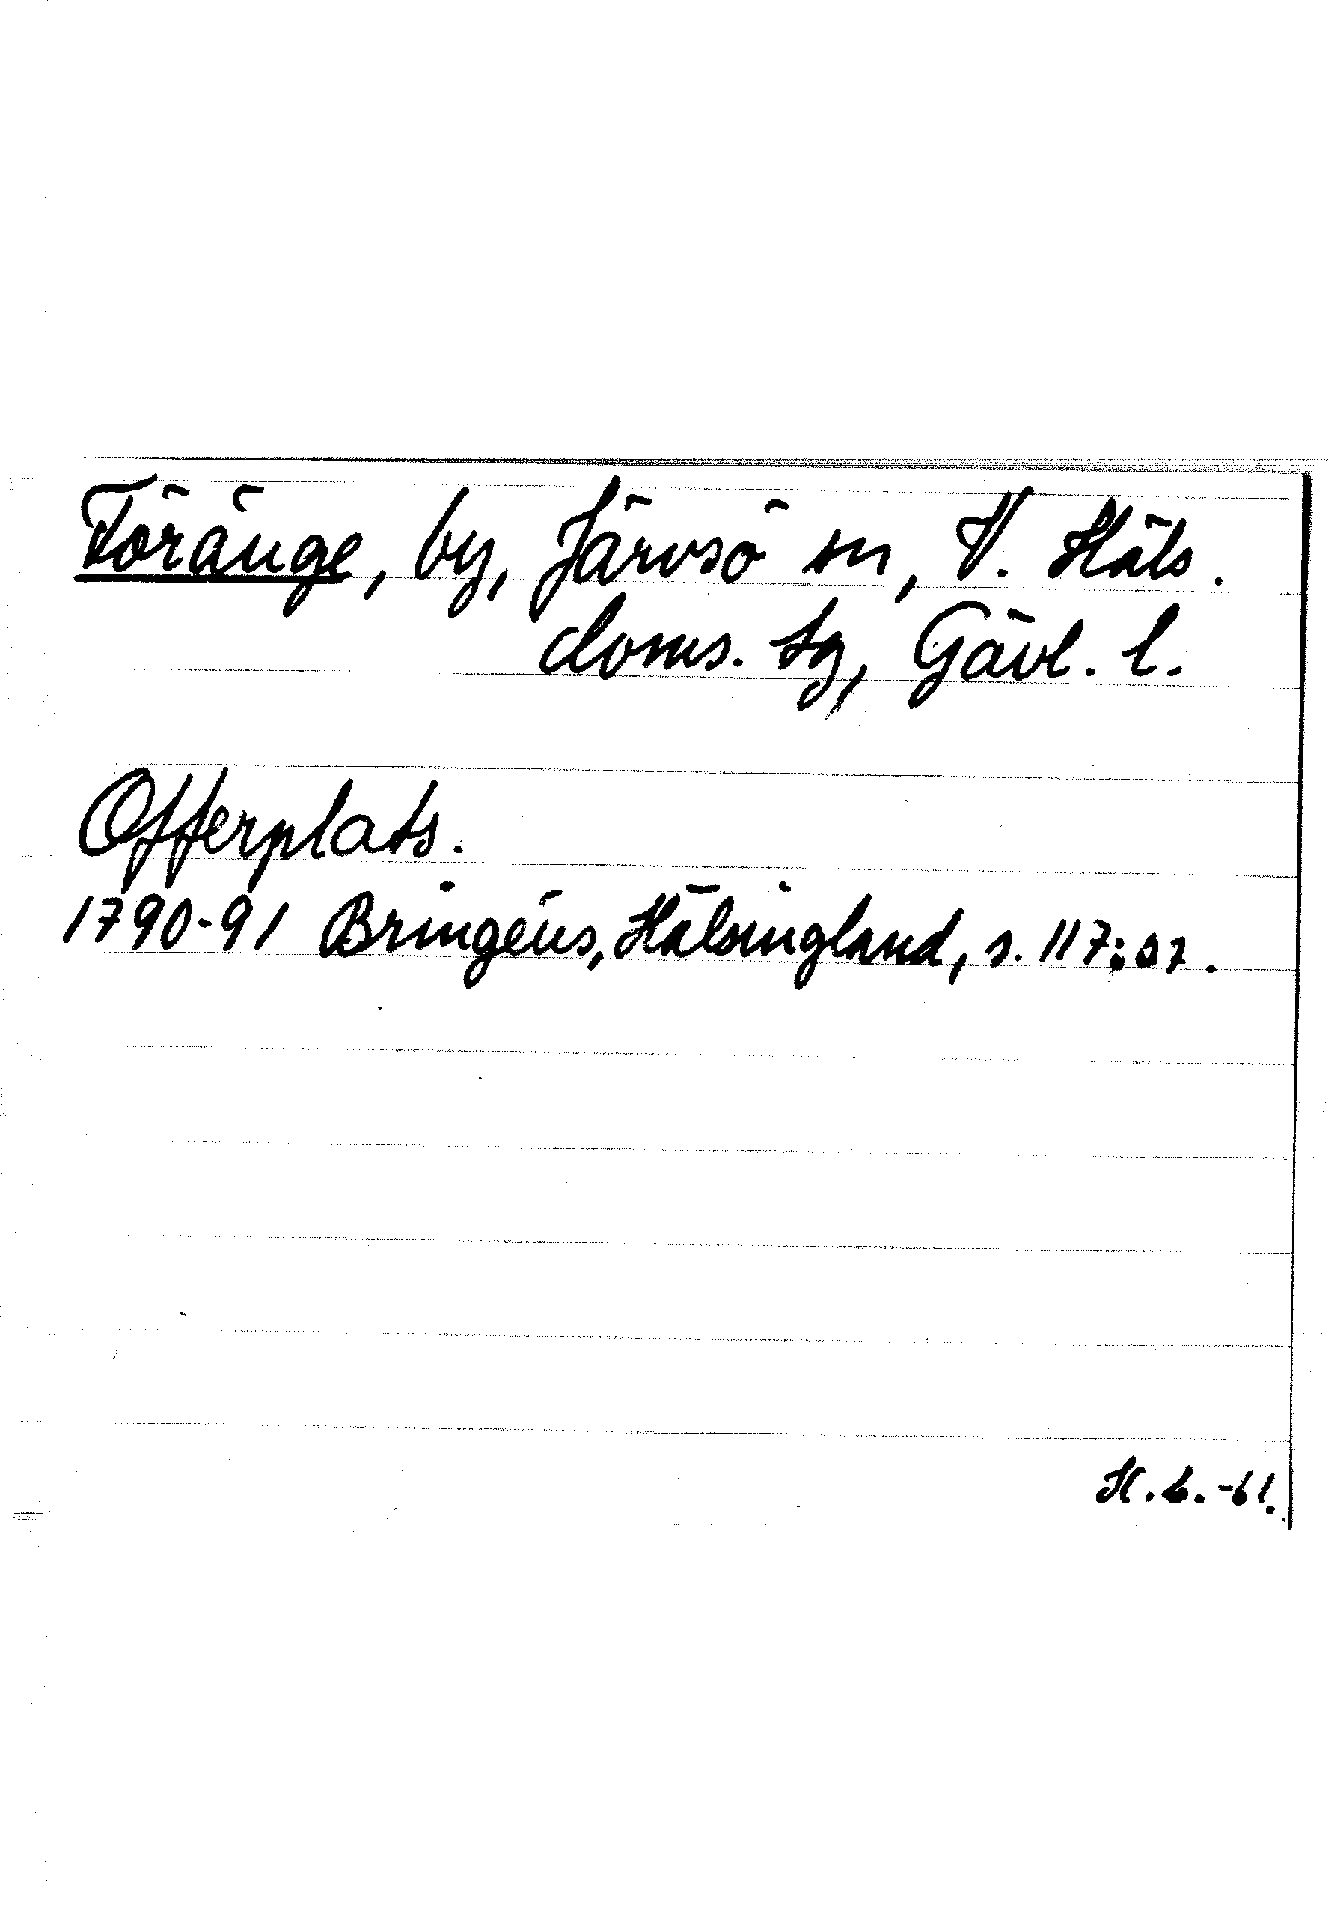 Föränge, by, Järvsö sn, V. Häls.
doms. tg, Gävl. l.
Offerplats.
1790-91 Bringéus, Hälsingland, s. 117:
H. -61.